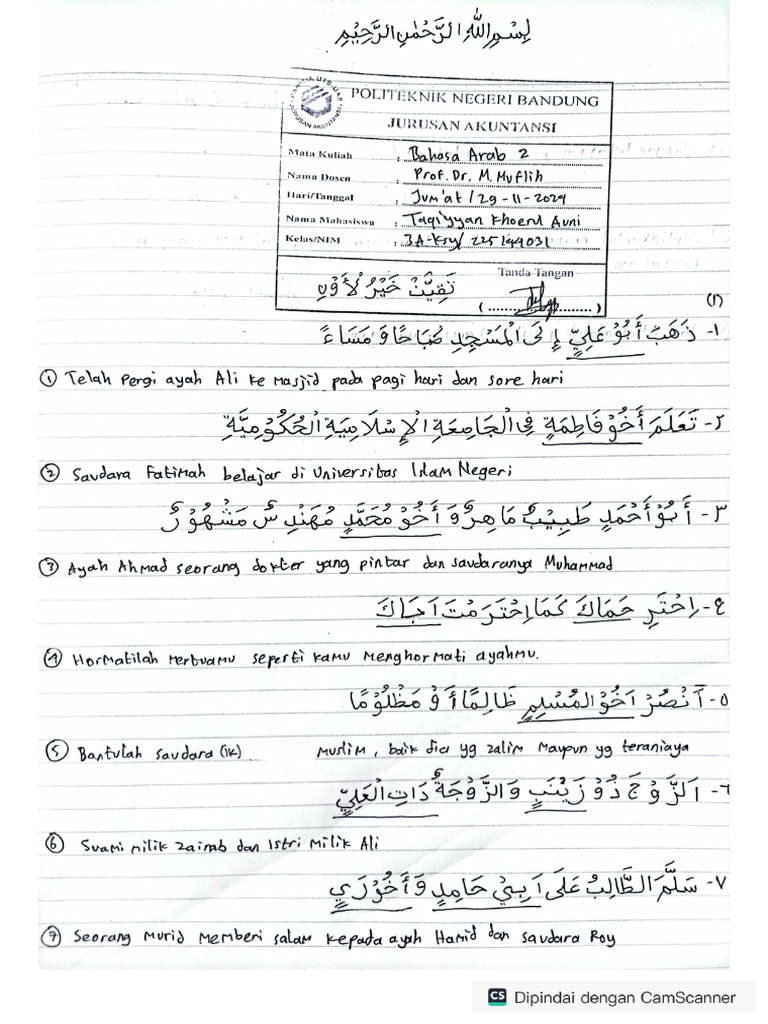 بِسْمِ اللهِ الرَّحْمٰنِ الرَّحِيْمِ
PANITIA UTS-UAS JURUSAN AKUNTANSI
POLITEKNIK NEGERI BANDUNG
JURUSAN AKUNTANSI
Mata Kuliah : Bahasa Arab 2
Nama Dosen : Prof. Dr. M. Muflih
Hari/Tanggal : Jum'at / 29-11-2024
Nama Mahasiswa : Taqiyyan Khoerul Auni
Kelas/NIM : 3A-Ksy/ 225144031
Tanda Tangan
(....................)
(١)
١- ذَهَبَ أَبُوْ عَلِيٍّ إِلَى الْمَسْجِدِ صَبَاحًا وَ مَسَاءً
① Telah pergi ayah Ali ke masjid pada pagi hari dan sore hari
٢- تَعَلَّمَ أَخُوْ فَاطِمَةٍ فِي الْجَامِعَةِ الْإِسْلَامِيَةِ الْحُكُوْمِيَّةِ
② Saudara Fatimah belajar di Universitas Islam Negeri
٣- أَبُوْ أَحْمَدٍ طَبِيْبٌ مَاهِرٌ وَ أَخُوْ مُحَمَّدٍ مُهَنْدِسٌ مَشْهُوْرٌ
③ Ayah Ahmad seorang dokter yang pintar dan saudaranya Muhammad
٤- اِحْتَرِ حَمَاكَ كَمَا اِحْتَرَمْتَ اَبَاكَ
④ Hormatilah mertuamu seperti kamu menghormati ayahmu.
٥- اَنْصُرْ اَخُوْ الْمُسْلِمِ ظَالِمًا أَوْ مَظْلُوْمًا
⑤ Bantulah saudara (lk) muslim, baik dia yg zalim maupun yg teraniaya
٦- اَلزَّوْجُ ذُوْ زَيْنَبٍ وَالزَّوْجَةُ ذَاتِ الْعَلِيِّ
⑥ Suami milik zainab dan Istri milik Ali
٧- سَلَّمَ الطَّالِبُ عَلَى اَبِيْ حَامِدٍ وَ أَخُوْ رَيٍ
⑦ Seorang murid memberi salam kepada ayah Hamid dan saudara Roy
CS Dipindai dengan CamScanner